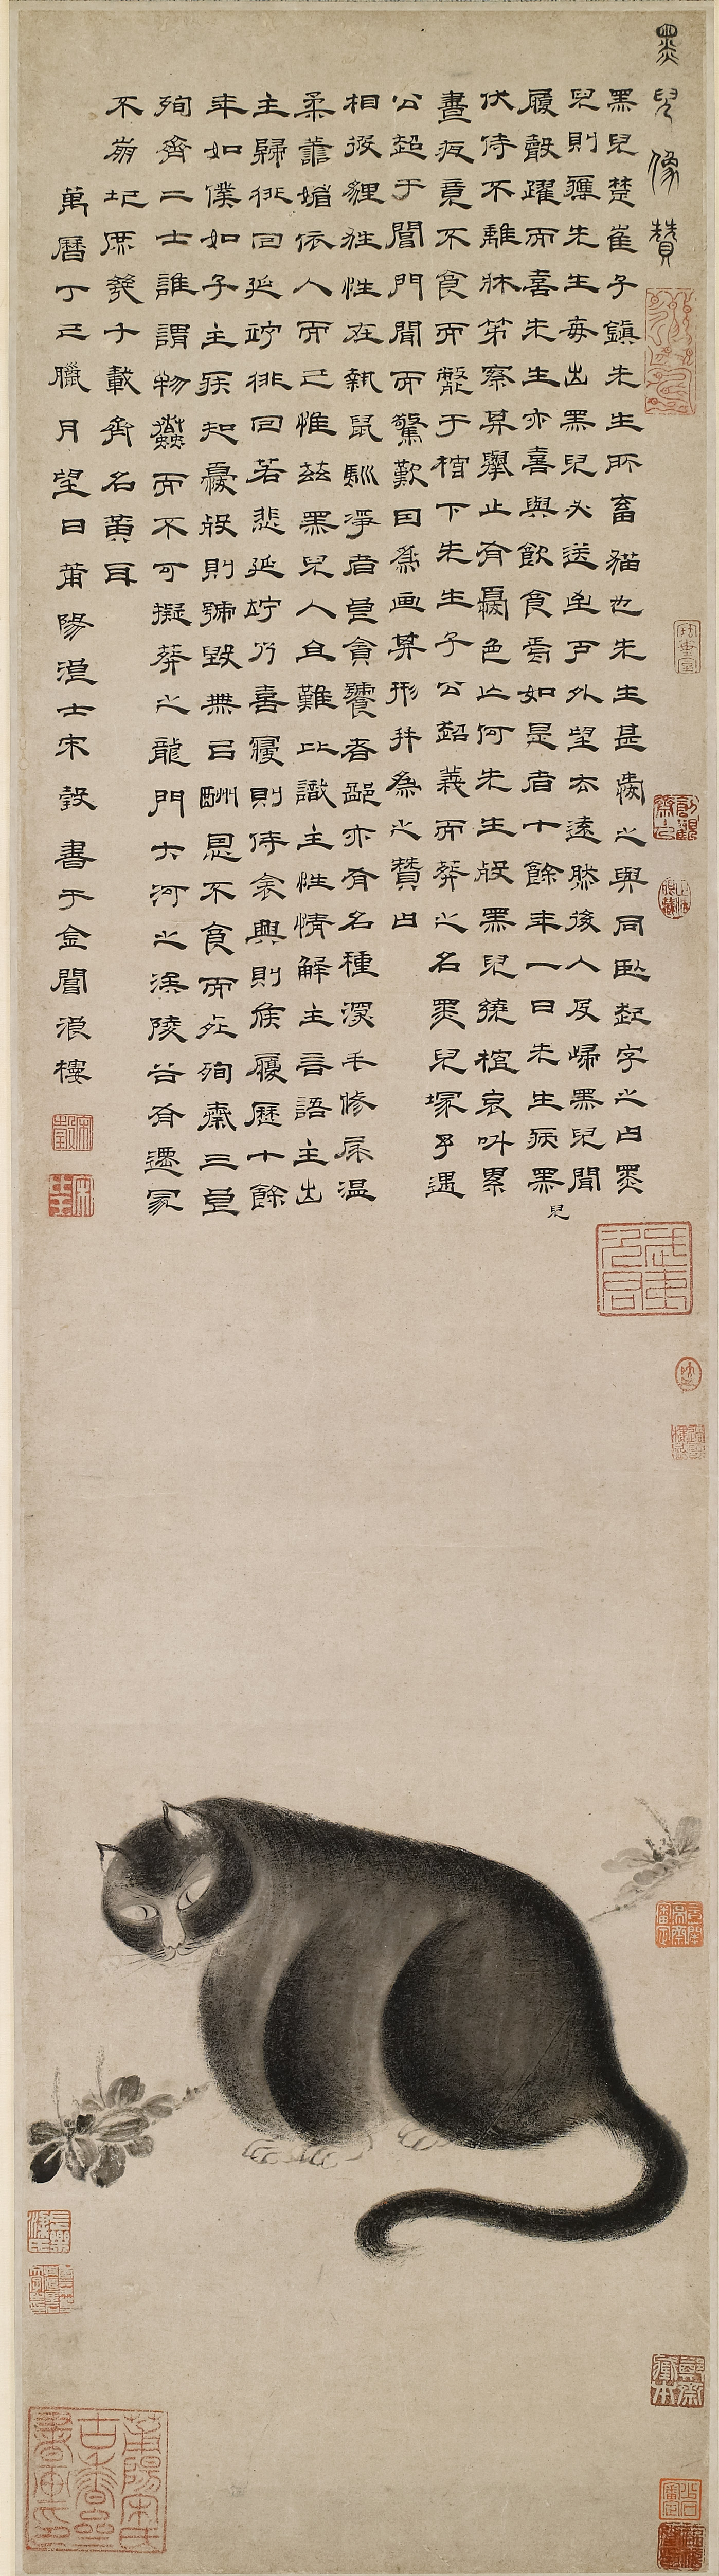 墨兒像贊
黑兒楚崔子鎮先生所畜貓也先生甚憐之與同臥起字之曰墨
兒則驒先生每出黑兒必送至戶外望去遠然後入及歸黑兒聞
履聲躍而喜先生亦喜與飲食焉如是者十餘年一日先生病黑兒
伏侍不離牀笫察其舉止有憂色亡何先生歿黑兒繞棺哀叫累
晝夜竟不食而斃于棺下先生子公超義而葬之名墨兒塚予遇
公超于閶門聞而驚歎因為画其形并為之贊曰
相彼貍狌性在執鼠馴淨者皂貪饕者鄙亦有名種深毛修尾溫
柔善媚依人而已惟茲黑兒人且難比識主性情解主言語主出
主歸徘回延竚徘回若悲延竚乃喜寢則侍衾興則候履歷十餘
年如僕如子主疾知憂歿則號毀無以酬恩不食而死殉齋三皂
殉齊二士誰謂物蠢而不可擬葬之龍門大河之涘陵谷有遷冢
不崩圮庶幾千載齊名黃耳
萬曆丁巳臘月望日莆陽漫士宋瑴書于金閶浪樓